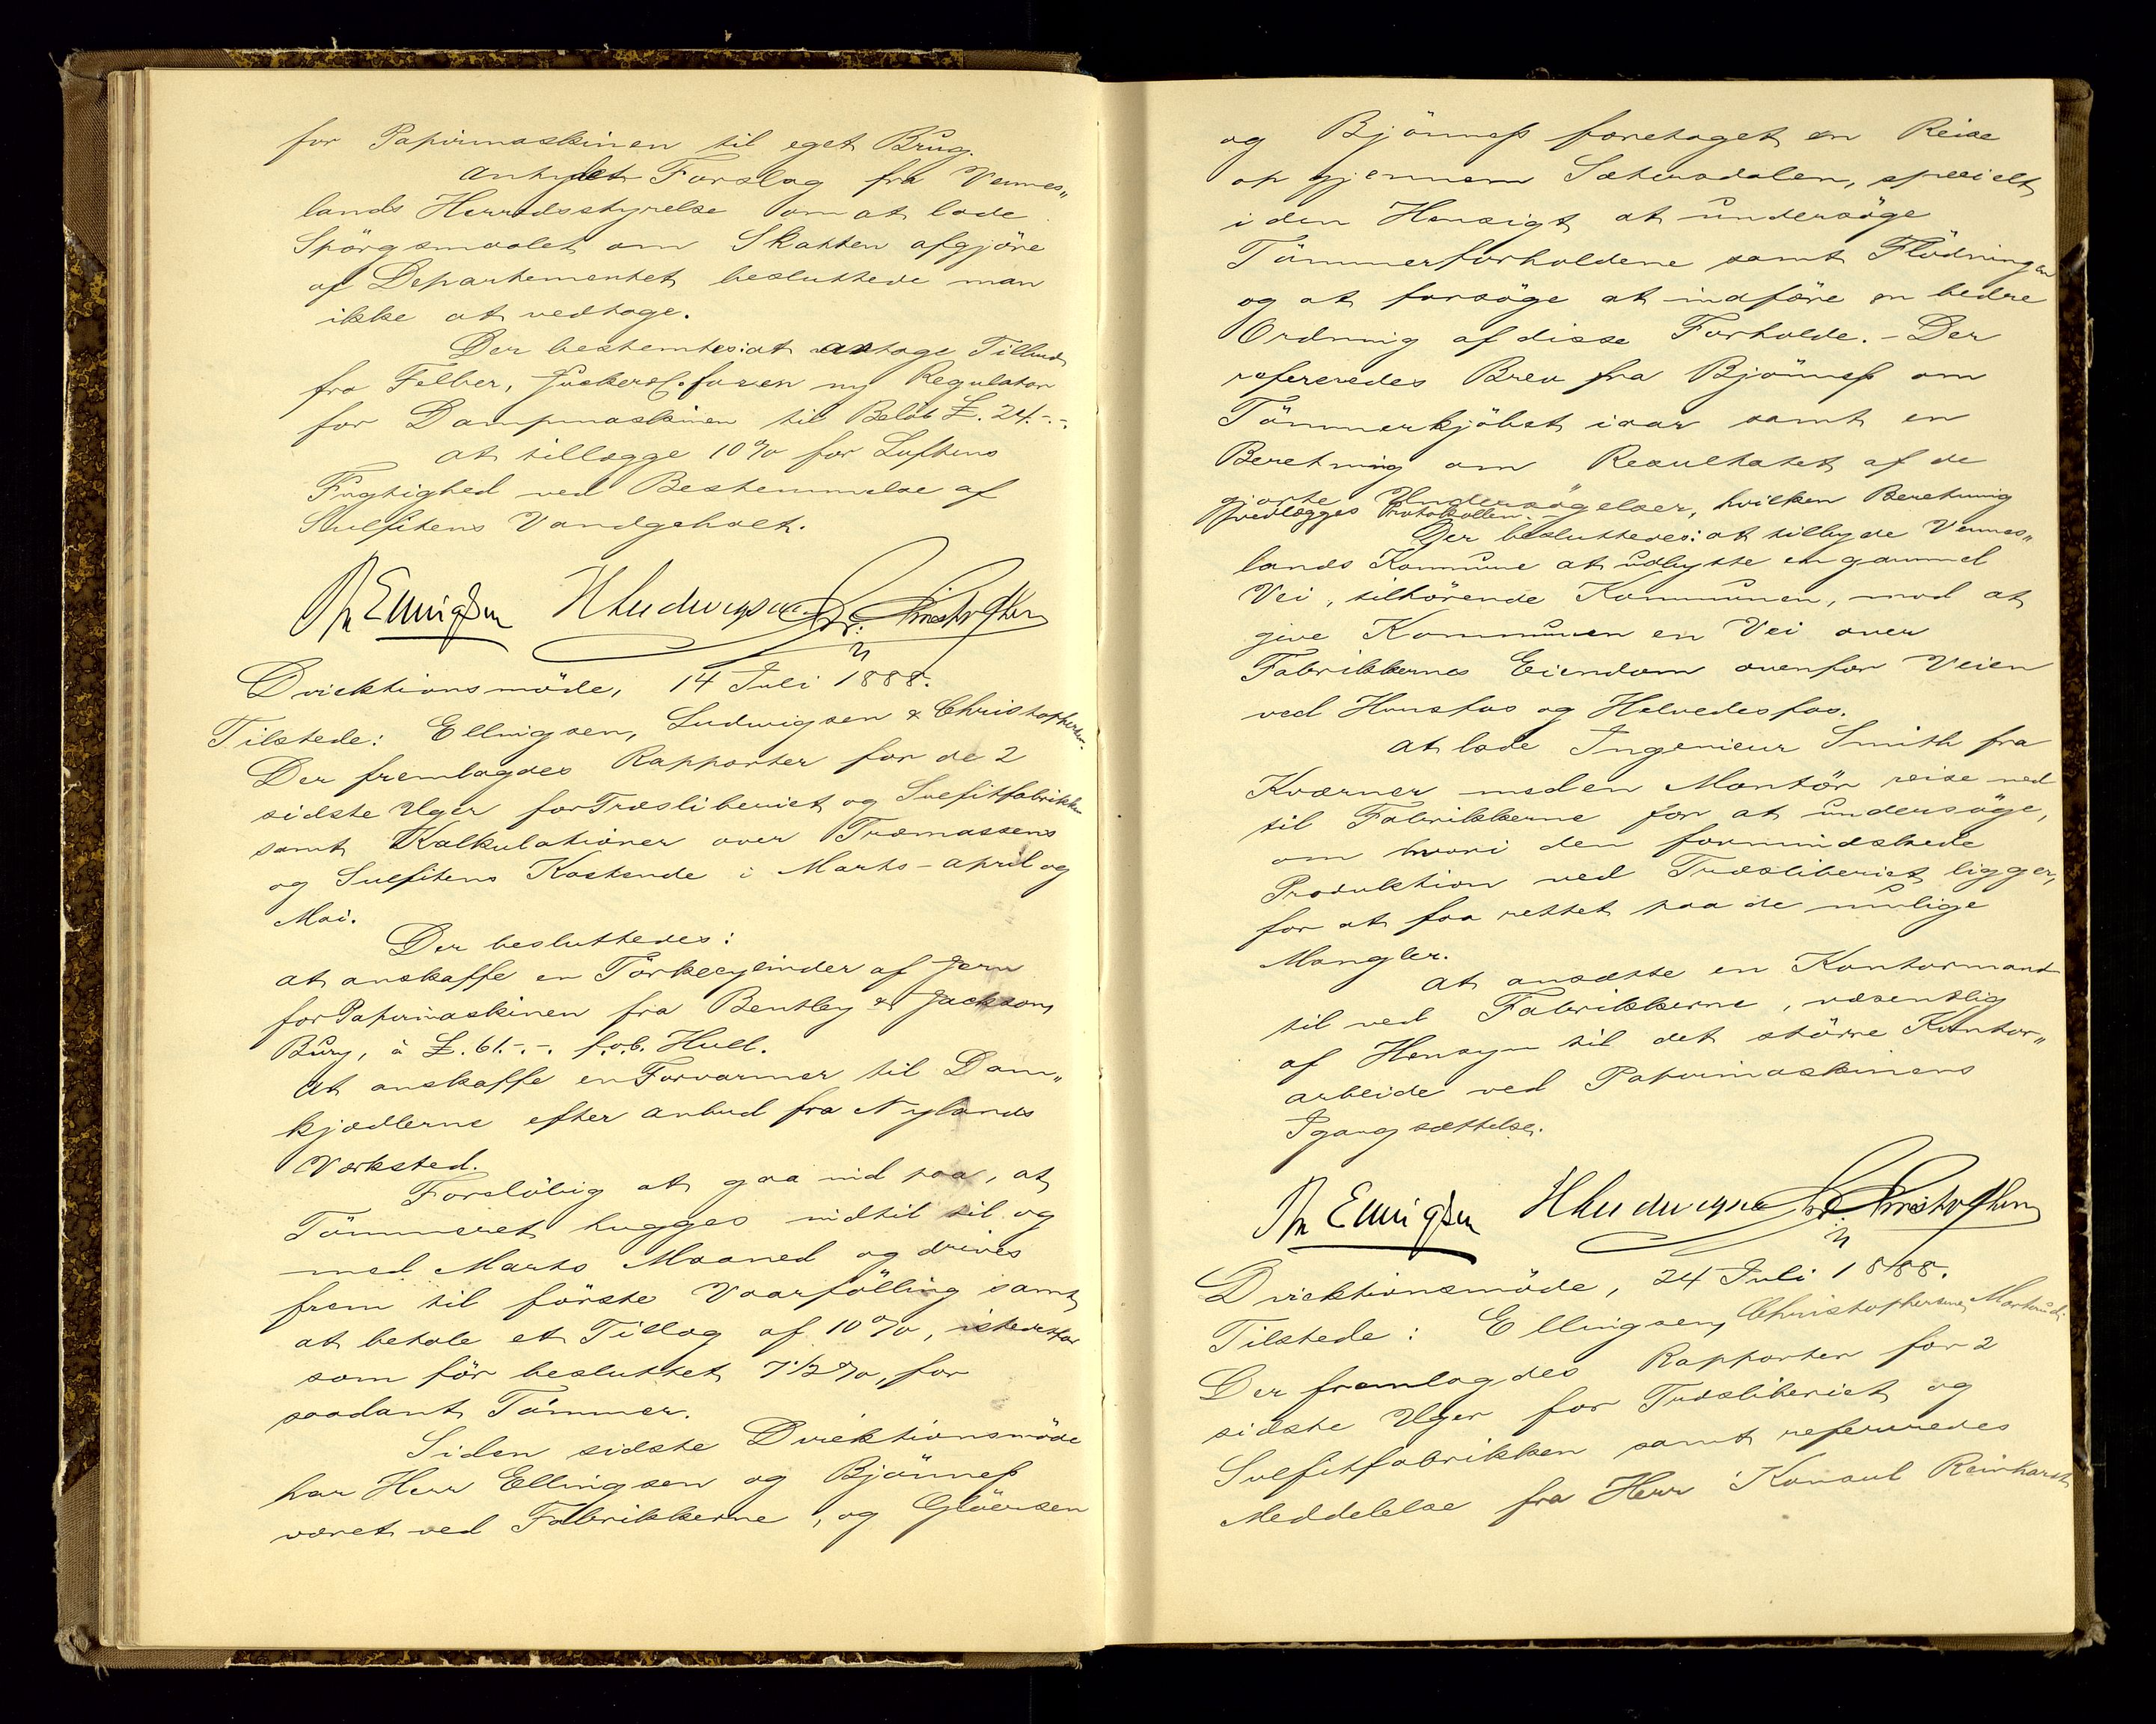 for Papirmaskinen til eget Brug.
Antydet Forslag fra Vennes„
lands Herredsstyrelse om at lade
Spörgsmaalet om Skatten afgjöre
af Departementet besluttede man
ikke at vedtage.
Der bestemtes: at antage Tilbud
fra Felber, Jucker & C. for en ny Regulator
for Dampmaskinen til Belöb £. 24.-.-.
at tillægge 10 % for Luftens
Fugtighed ved Bestemmelse af
Sulfitens Vandgehalt.
Th Ellingsen H Ludwigsen Chr. Christophersen
Direktionsmöde, 14 Juli 1888.
Tilstede: Ellingsen, Ludwigsen & Christophersen.
Der fremlagdes Rapporter for de 2
sidste Uger for Træsliberiet og Sulfitfabrikken
samt Kalkulationer over Træmassens
og Sulfitens Kostende i Marts - April og
Mai.
Der besluttedes:
at anskaffe en Törkecylinder af Jern
for Papirmaskinen fra Bentley & Jackson,
Bury, à £. 61.-.-. f.o.b. Hull.
At anskaffe en Forvarmer til Dam„
kjedlerne efter Anbud fra Nylands
Værksted.
Forelöbig at gaa ind paa, at
Tömmeret hugges indtil til og
med Marts Maaned og drives
frem til förste Vaarfölling samt
at betale et Tillæg af 10 %, istedetfor
som för besluttet 7 1/2 %, for
saadant Tömmer.
Siden sidste Direktionsmöde
har Herr Ellingsen og Bjönness
været ved Fabrikkerne, og Glöersen
og Bjönness foretaget en Reise
op gjennem Sætersdalen, specielt
i den Hensigt at undersöge
Tömmerforholdene samt Flödningen
og at forsöge at indföre en bedre
Ordning af disse Forholde. - Der
refereredes Brev fra Bjönness om
Tömmerkjöbet iaar samt en
Beretning om Resultatet af de
gjorte Undersögelser, hvilken Beretning
vedlægges Protokollen. -
Der besluttedes: at tilbyde Vennes„
lands Kommune at udbytte en gammel
Vei, tilhörende Kommunen, mod at
give Kommunen en Vei over
Fabrikkernes Eiendom ovenfor Veien
ved Hunsfos og Helvedesfos.
At lade Ingeniеur Smith fra
Kværner med en Montör reise ned
til Fabrikkerne for at undersöge,
om hvori den formindskede
Produktion ved Træsliberiet ligger,
for at faa rettet paa de mulige
Mangler.
At ansætte en Kontormand
til ved Fabrikkerne, væsentlig
af Hensyn til det större Kontor„
arbeide ved Papirmaskinens
Igangsættelse.
Th Ellingsen H Ludwigsen Chr. Christophersen
Direktionsmöde, 24 Juli 1888.
Tilstede: Ellingsen, Christophersen,
Der fremlagdes Rapporter for 2
sidste Uger for Træsliberiet og
Sulfitfabrikken samt refereredes
Meddelelse fra Herr Konsul Reinhardt